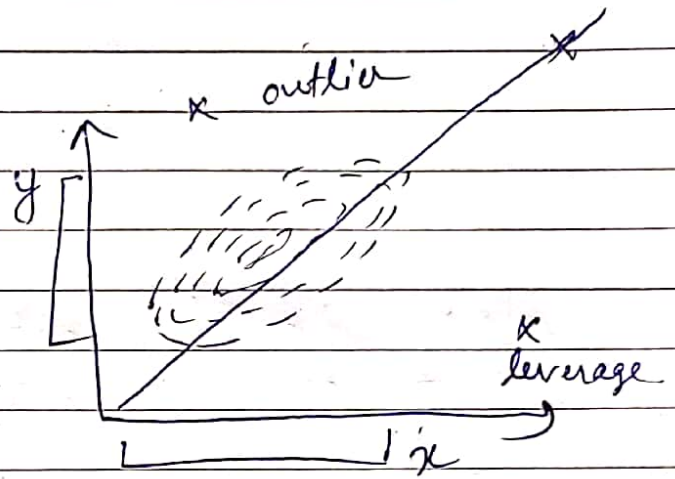 x outlier
y
x
leverage
x